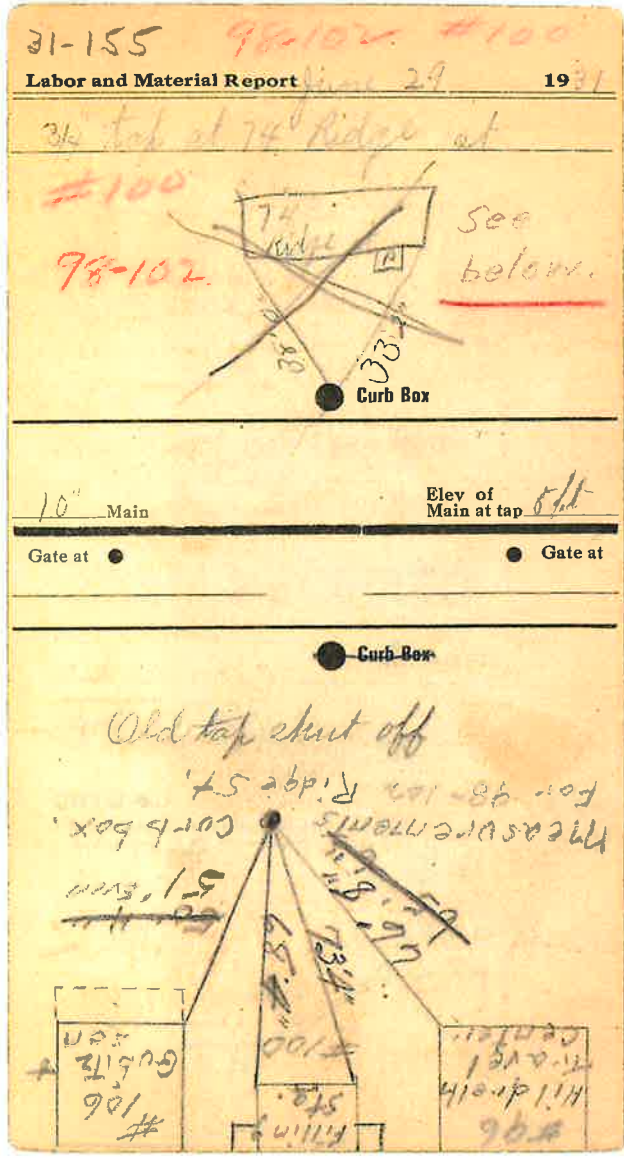 31-155 98-102 #100
Labor and Material Report June 29 1931
3/4" tap at 74 Ridge at
#100
98-102
74
Ridge
See
below.
33'2"
Curb Box
10" Main
Elev of
Main at tap 5 ft
Gate at
Gate at
Curb Box
Old tap shut off
Measurements curb box.
For 98-102 Ridge St.
51' even
65'4"
73'4"
66' 8"
#106
Gubitz
#100
Filling
Sta.
#96
Hildreth
Travel
Center